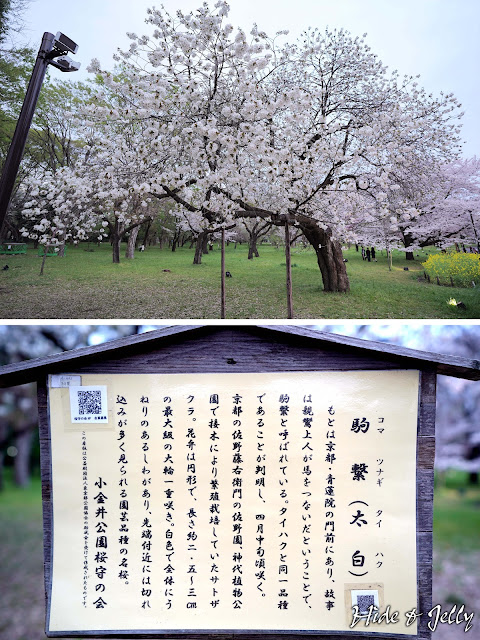 コマ ツナギ タイ ハク
駒繋(太白)
もとは京都・青蓮院の門前にあり、故事
は親鸞上人が馬をつないだということで、
駒繋と呼ばれている。タイハクと同一品種
であることが判明し、四月中旬頃咲く。
京都の佐野藤右衛門の佐野園、神代植物公
園で接木により繁殖栽培していたサトザ
クラ。花弁は円形で、長さ約二・五～三㎝
の最大級の大輪一重咲き。白色で全体にう
ねりのあるしわがあり、先端付近には切れ
込みが多くみられる園芸品種の名桜。
小金井公園桜守の会
Hide & Jelly
Hide & Jelly